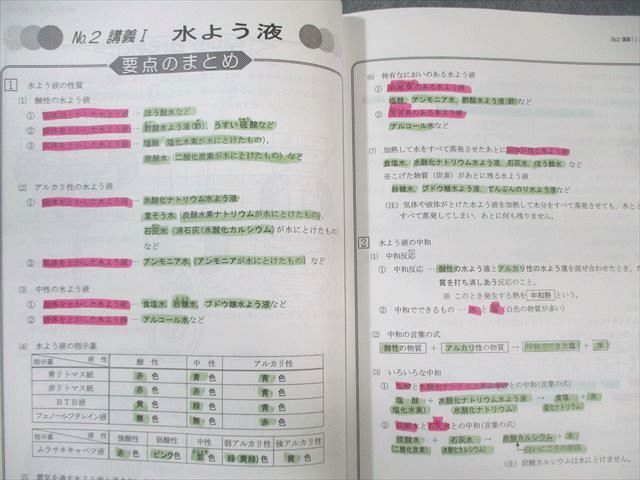 No.2 講義Ⅰ 水よう液
要点のまとめ
1 水よう液の性質
(1) 酸性の水よう液
① 固体をとかした水よう液 … ほう酸水など
② 液体をとかした水よう液 … 酢酸水よう液(酢)、うすい硫酸など
③ 気体をとかした水よう液 … 塩酸(塩化水素が水にとけたもの),
炭酸水(二酸化炭素が水にとけたもの)など
(2) アルカリ性の水よう液
① 固体をとかした水よう液 … 水酸化ナトリウム水よう液
重そう水(炭酸水素ナトリウムが水にとけたもの),
石灰水(消石灰(水酸化カルシウム)が水にとけたもの)
など
② 気体をとかした水よう液 … アンモニア水(アンモニアが水にとけたもの)など
(3) 中性の水よう液
① 固体をとかした水よう液 … 食塩水、砂糖水、ブドウ糖水よう液など
② 液体をとかした水よう液 … アルコール水など
(4) 水よう液の指示薬
指示薬 液性 酸性 中性 アルカリ性
青リトマス紙 赤色 青色 青色
赤リトマス紙 赤色 赤色 青色
BTB液 黄色 緑色 青色
フェノールフタレイン液 無色 無色 赤色
指示薬 液性 強酸性 弱酸性 中性 弱アルカリ性 強アルカリ性
ムラサキキャベツ液 赤色 ピンク色 紫色 緑(黄緑)色 黄色
No.2 講義Ⅰ
(6) 特有なにおいのある水よう液
① のある水よう液
塩酸、アンモニア水、酢酸水よう液(酢)など
② のある水よう液
アルコール水など
(7) 加熱して水をすべて蒸発させたあとに が残る水よう液
食塩水、水酸化ナトリウム水よう液、石灰水、ほう酸水 など
※こげた物質(炭素)があとに残る水よう液
砂糖水、ブドウ糖水よう液、でんぷんのり水よう液など
(注) 気体や液体がとけた水よう液を加熱して水分をすべて蒸発させても、水と
すべて蒸発してしまい、あとに何も残りません。
2 水よう液の中和
(1) 中和反応
① 中和反応 … 酸性の水よう液とアルカリ性の水よう液を混ぜ合わせたとき、た
質を打ち消しあう反応のこと。
※ このとき発生する熱を中和熱という。
② 中和でできるもの … 水と塩(白色の物質が多い)
(2) 中和の言葉の式
酸性の物質 + アルカリ性の物質 → 中和でできた塩 + 水
(3) いろいろな中和
① 塩酸と水酸化ナトリウム水よう液との中和(言葉の式)
塩酸 + 水酸化ナトリウム水よう液 → 食塩 + 水
(塩化水素) (水酸化ナトリウム) (塩化ナトリウム)
② 炭酸水と石灰水との中和(言葉の式)
炭酸水 + 石灰水 → 炭酸カルシウム + 水
(二酸化炭素) (水酸化カルシウム) 白いにごりの原因
(注) 炭酸カルシウムは水にとけません。